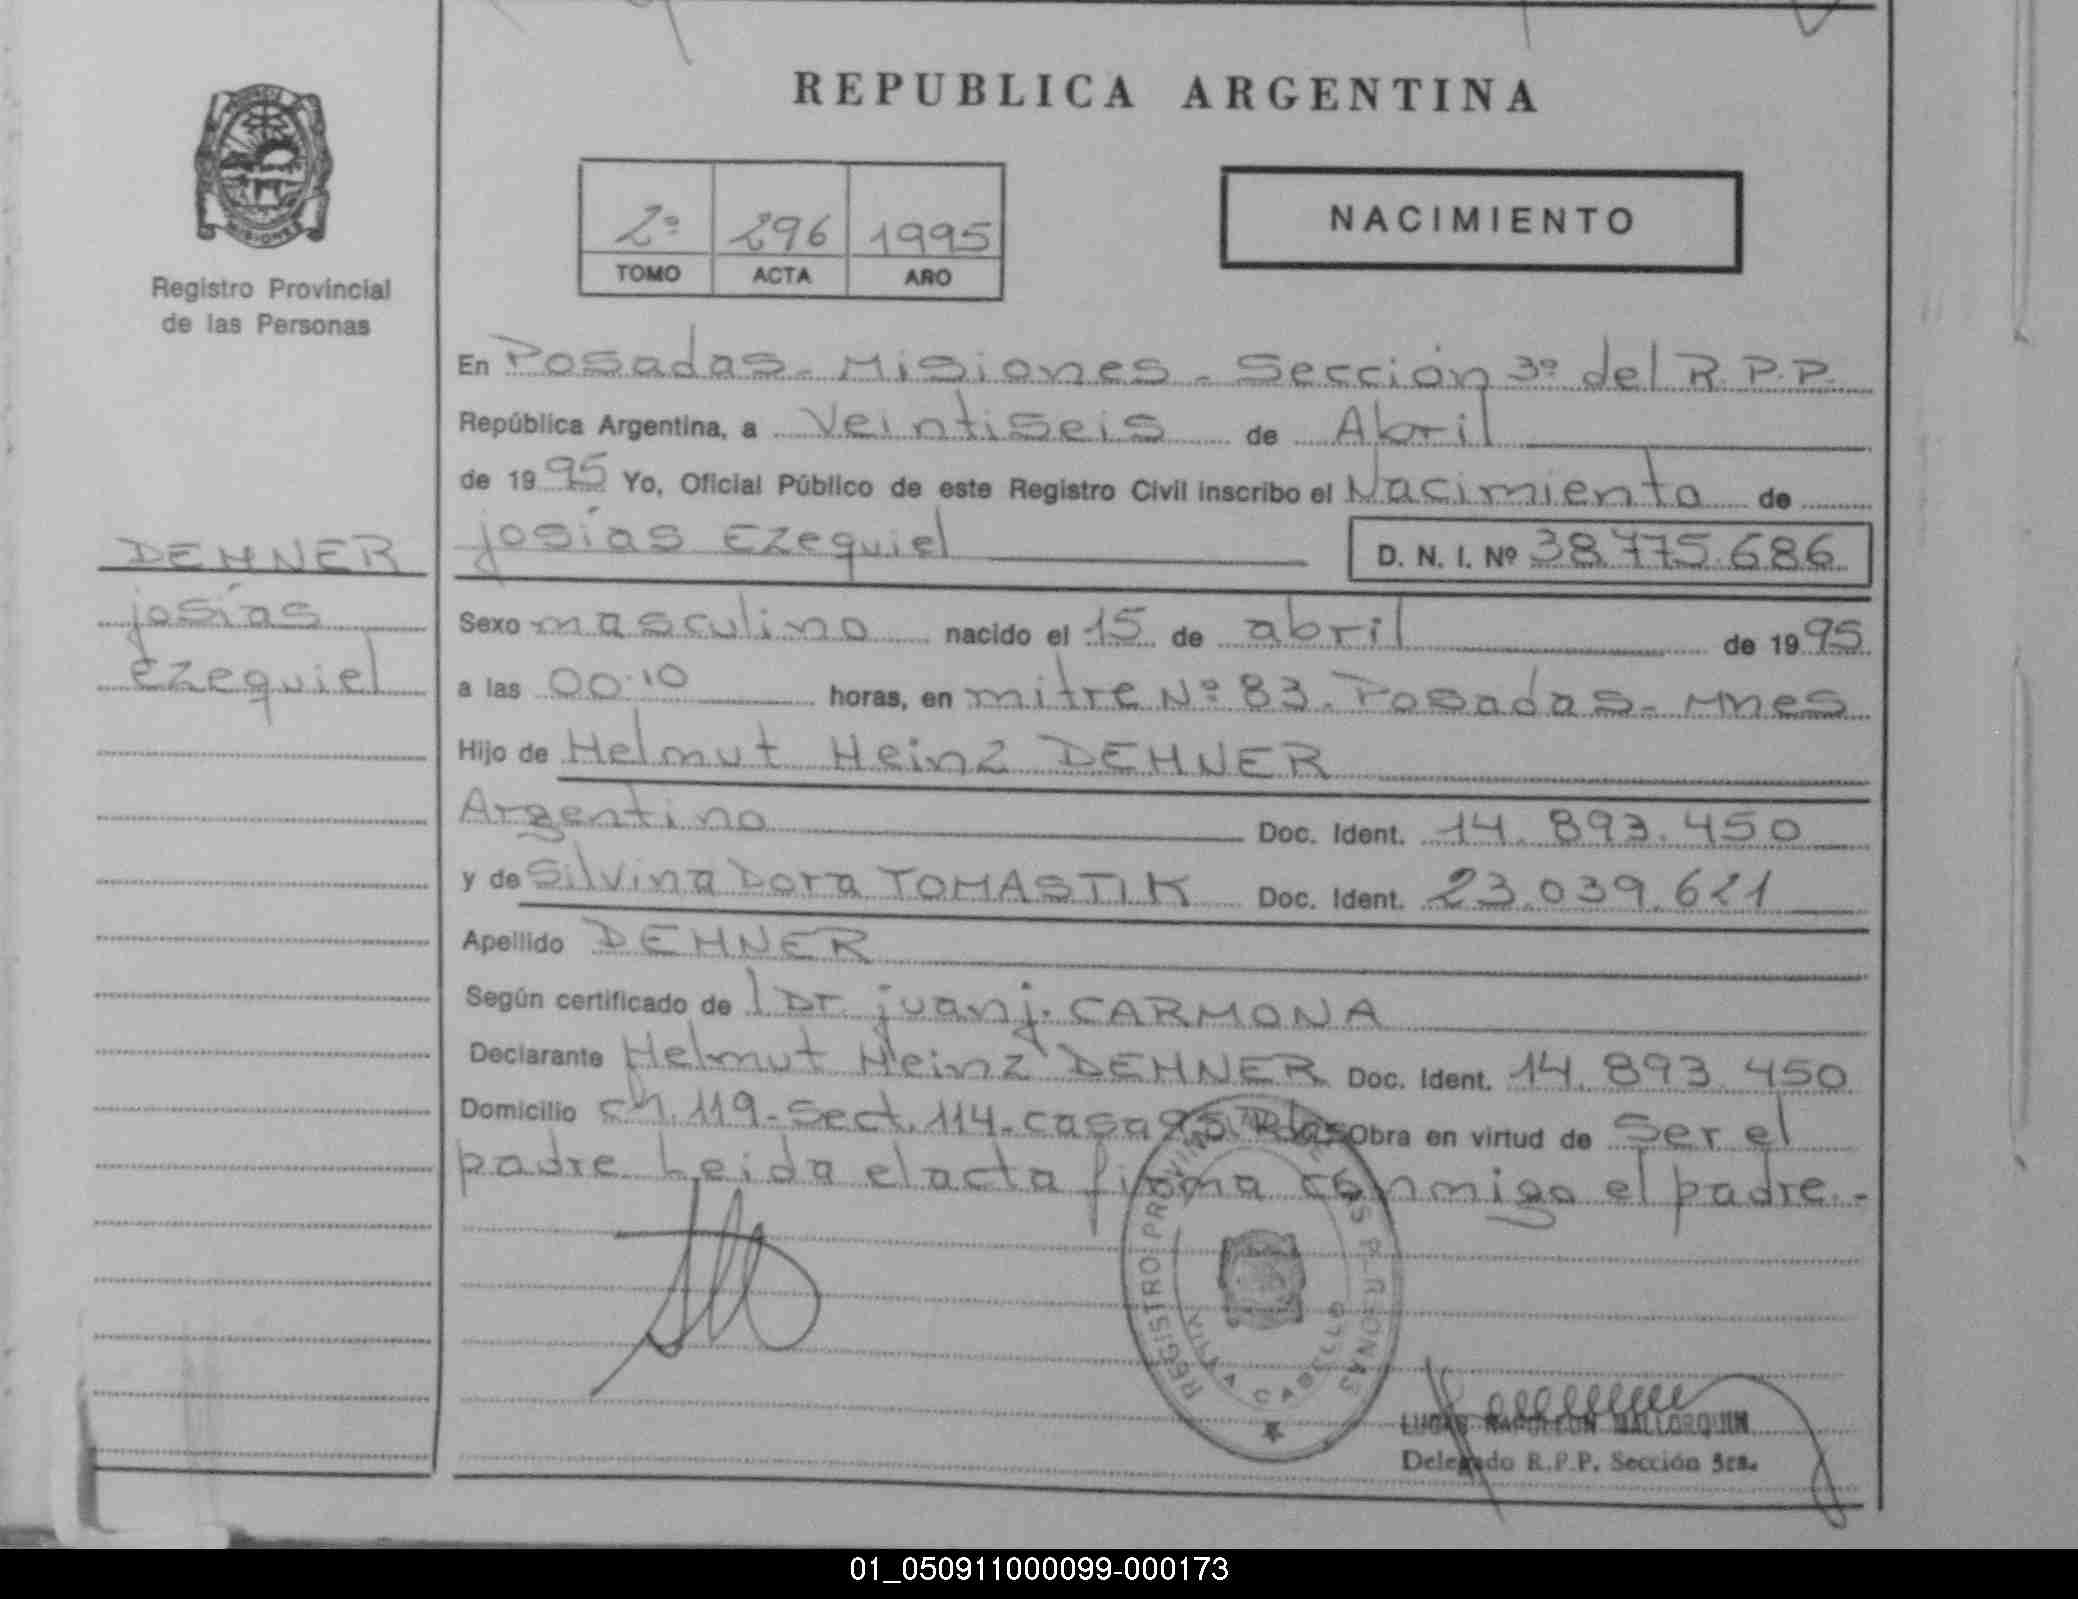 REPUBLICA ARGENTINA
MISIONES
Registro Provincial
de las Personas
2º 296 1995
TOMO ACTA AÑO
NACIMIENTO
En Posadas - Misiones - Sección 3º del R.P.P.
República Argentina, a Veintiseis de Abril
de 1995 Yo, Oficial Público de este Registro Civil inscribo el Nacimiento de
DEHNER
josías
ezequiel
josías Ezequiel D. N. I. Nº 38.775.686
Sexo masculino nacido el 15 de abril de 1995
a las 00:10 horas, en mitre Nº 83. Posadas - Mnes
Hijo de Helmut Heinz DEHNER
Argentino Doc. Ident. 14.893.450
y de Silvina Dora TOMASTIK Doc. Ident. 23.039.621
Apellido DEHNER
Según certificado de l Dr. juan j. CARMONA
Declarante Helmut Heinz DEHNER Doc. Ident. 14.893.450
Domicilio ch. 119 - Sect. 114 - casa 95 Obra en virtud de Ser el
padre. Leida el acta firma conmigo el padre.-
REGISTRO PROVINCIAL DE LAS PERSONAS
VILLA CABELLO
LUCAS NAPOLEON MALLORQUIN
Delegado R.P.P. Sección 3ra.
01_050911000099-000173